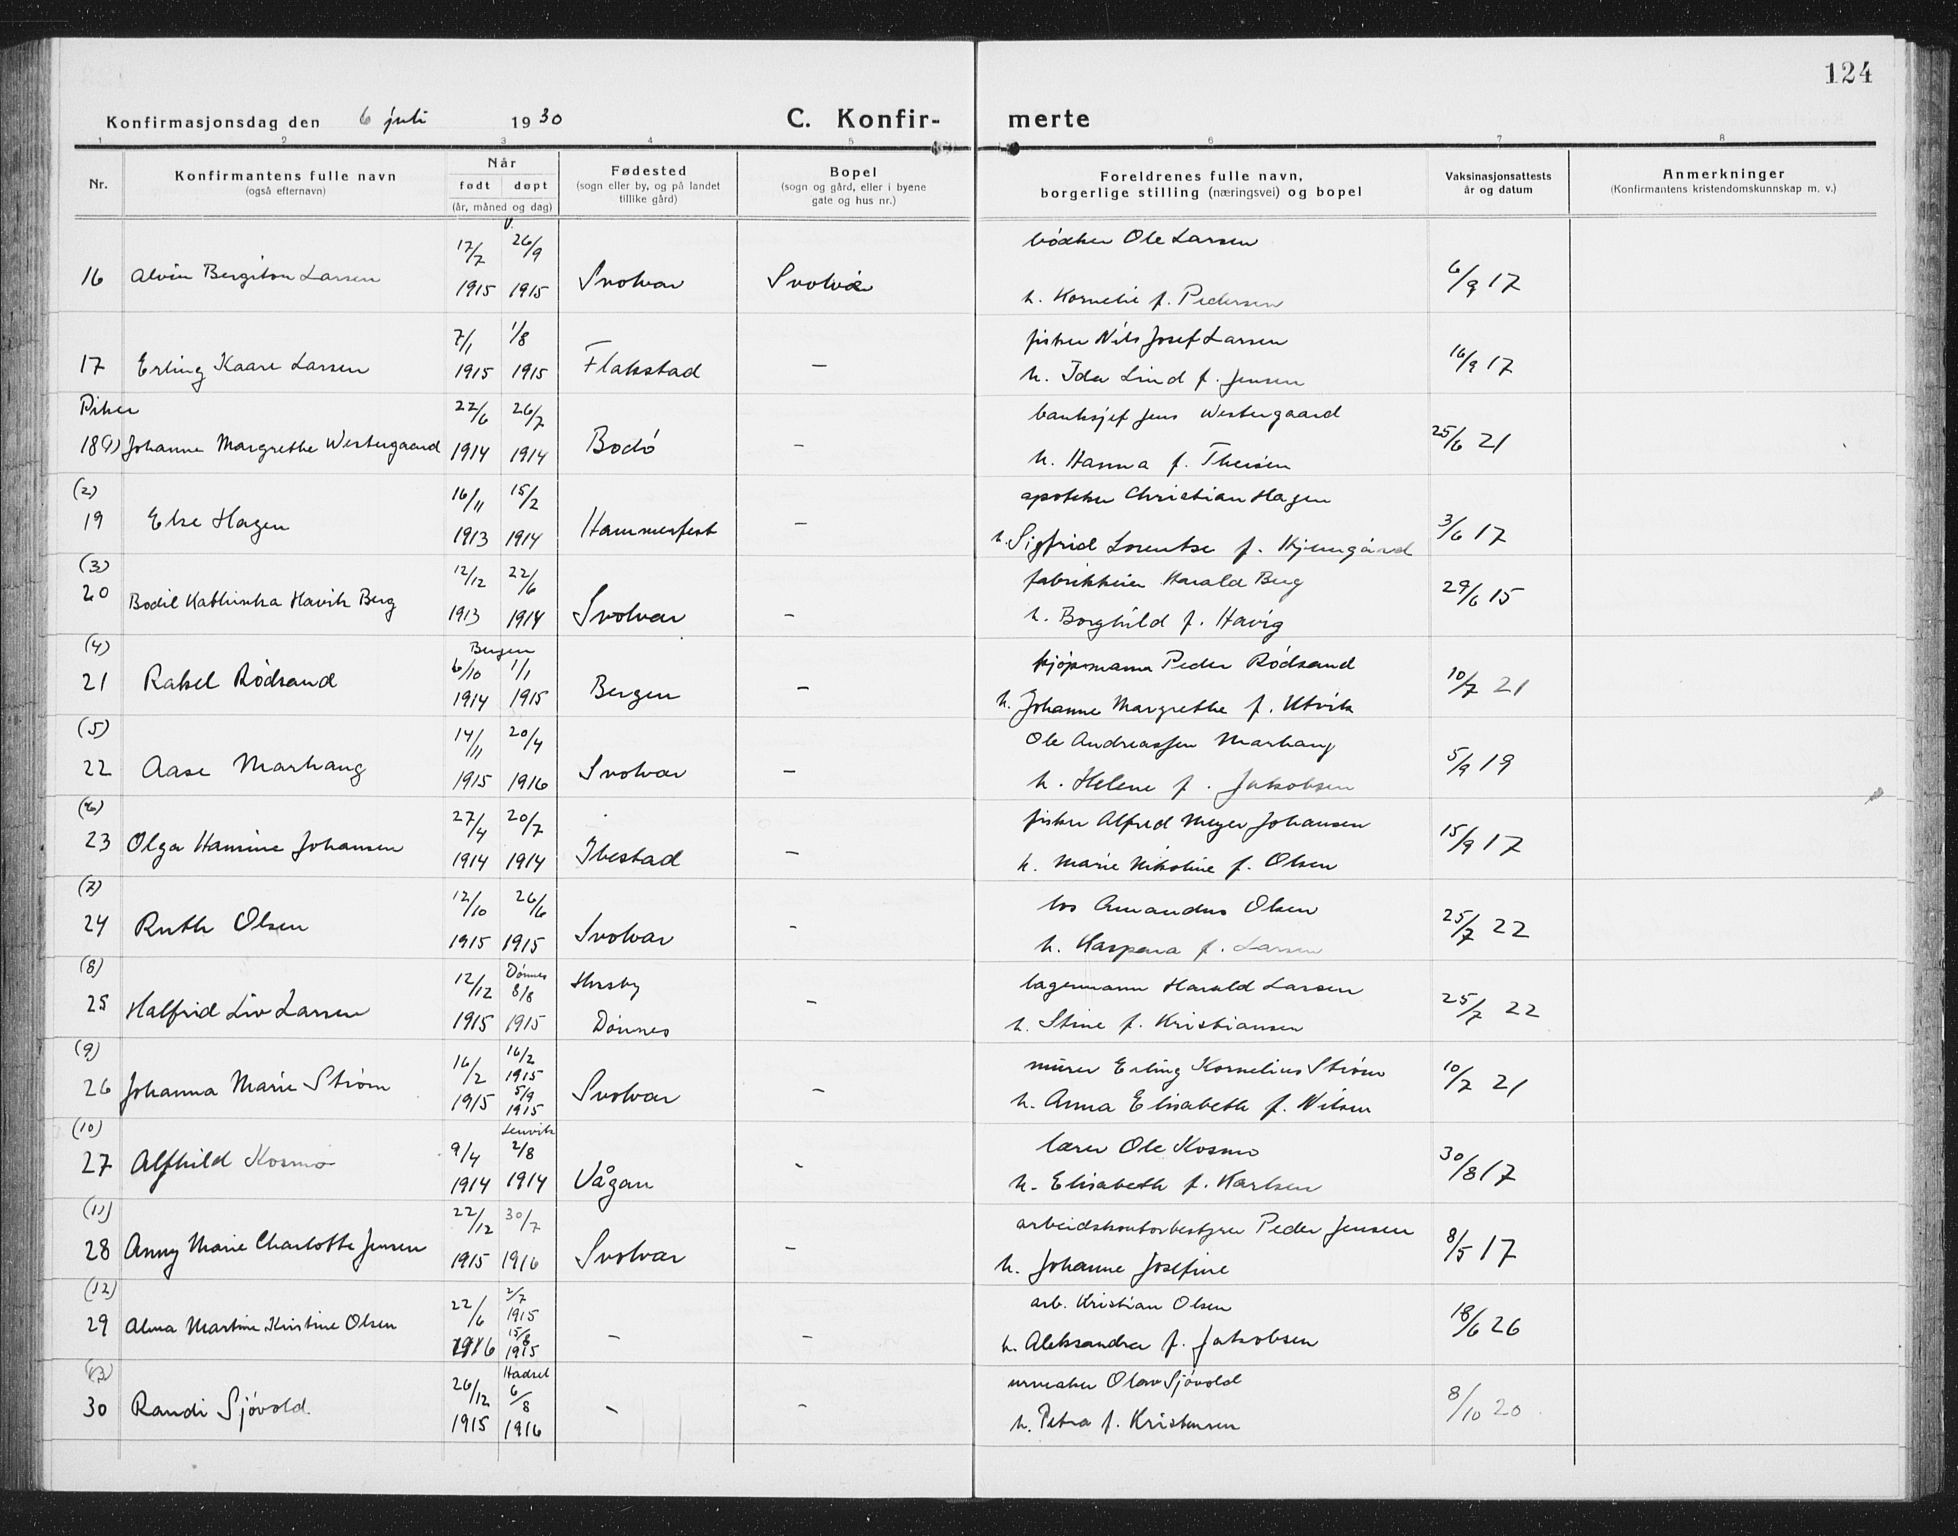 124
Konfirmasjonsdag den 6 juli 1930 C. Konfir- merte
1 2 3 4 5 6 7 8
Nr. Konfirmantens fulle navn (også efternavn) Når født døpt (år, måned og dag) Fødested (sogn eller by, og på landet tillike gård) Bopel (sogn og gård, eller i byene gate og hus nr.) Foreldrenes fulle navn, borgerlige stilling (næringsvei) og bopel Vaksinasjonsattests år og datum Anmerkninger (Konfirmantens kristendomskunnskap m. v.)
V.
17/7 26/9 bødker Ole Larsen
16 Alvin Bergiton Larsen 1915 1915 Svolvær Svolvær h. Kornelie f. Pedersen 6/9 17
7/1 1/8 fisker Nils Josef Larsen
17 Erling Kaare Larsen 1915 1915 Flakstad — h. Ida Lind f. Jensen 16/9 17
Piker 22/6 26/7 banksjef Jens Westergaard
18 (1) Johanne Margrethe Westergaard 1914 1914 Bodø — h. Hanna f. Theisen 25/6 21
(2) 16/11 15/2 apoteker Christian Hagen
19 Else Hagen 1913 1914 Hammerfest — h. Sigfrid Lorentse f. 3/6 17
(3) 12/12 22/6 fabrikkeier Harald Berg
20 Bodil Kathinka Havik Berg 1913 1914 Svolvær — h. Borghild f. Havig 29/6 15
(4) Bergen 6/10 1/1 kjøpmann Peder Rødsand
21 Rakel Rødsand 1914 1915 Bergen — h. Johanne Margrethe f. Utvik 10/7 21
(5) 14/11 20/4 Ole Andreassen Marhaug
22 Aase Marhaug 1915 1916 Svolvær — h. Helene f. Jakobsen 5/9 19
(6) 27/4 20/7 fisker Alfred Meyer Johansen
23 Olga Hansine Johansen 1914 1914 Ibestad — h. Marie Nikoline f. Olsen 15/9 17
(7) 12/10 26/6 los Amandus Olsen
24 Ruth Olsen 1915 1915 Svolvær — h. Kaspara f. Larsen 25/7 22
(8) 12/12 Dønnes 8/8 Husby lagermann Harald Larsen
25 Halfrid Liv Larsen 1915 1915 Dønnes — h. Stine f. Kristiansen 25/7 22
(9) 16/2 16/2 1915 murer Erling Kornelius Strøm
26 Johanna Marie Strøm 1915 5/9 1915 Svolvær — h. Anna Elisabeth f. Nilsen 10/7 21
(10) 9/4 Lenvik 2/8 lærer Ole Kosmo
27 Alfhild Kosmo 1914 1914 Vågan — h. Elisabeth f. Karlsen 30/8 17
(11) 22/12 30/7 arbeidskontorbestyrer Peder Jensen
28 Anny Marie Charlotte Jensen 1915 1916 Svolvær — h. Johanne Josefine 8/5 17
(12) 22/6 2/7 1915 arb. Kristian Olsen
29 Alma Martine Kristine Olsen 1916 15/8 1915 — — h. Aleksandra f. Jakobsen 18/6 26
(13) 26/12 Hadsel 6/8 urmaker Olav Sjøvold
30 Randi Sjøvold 1915 1916 — — h. Petra f. Kristensen 8/10 20